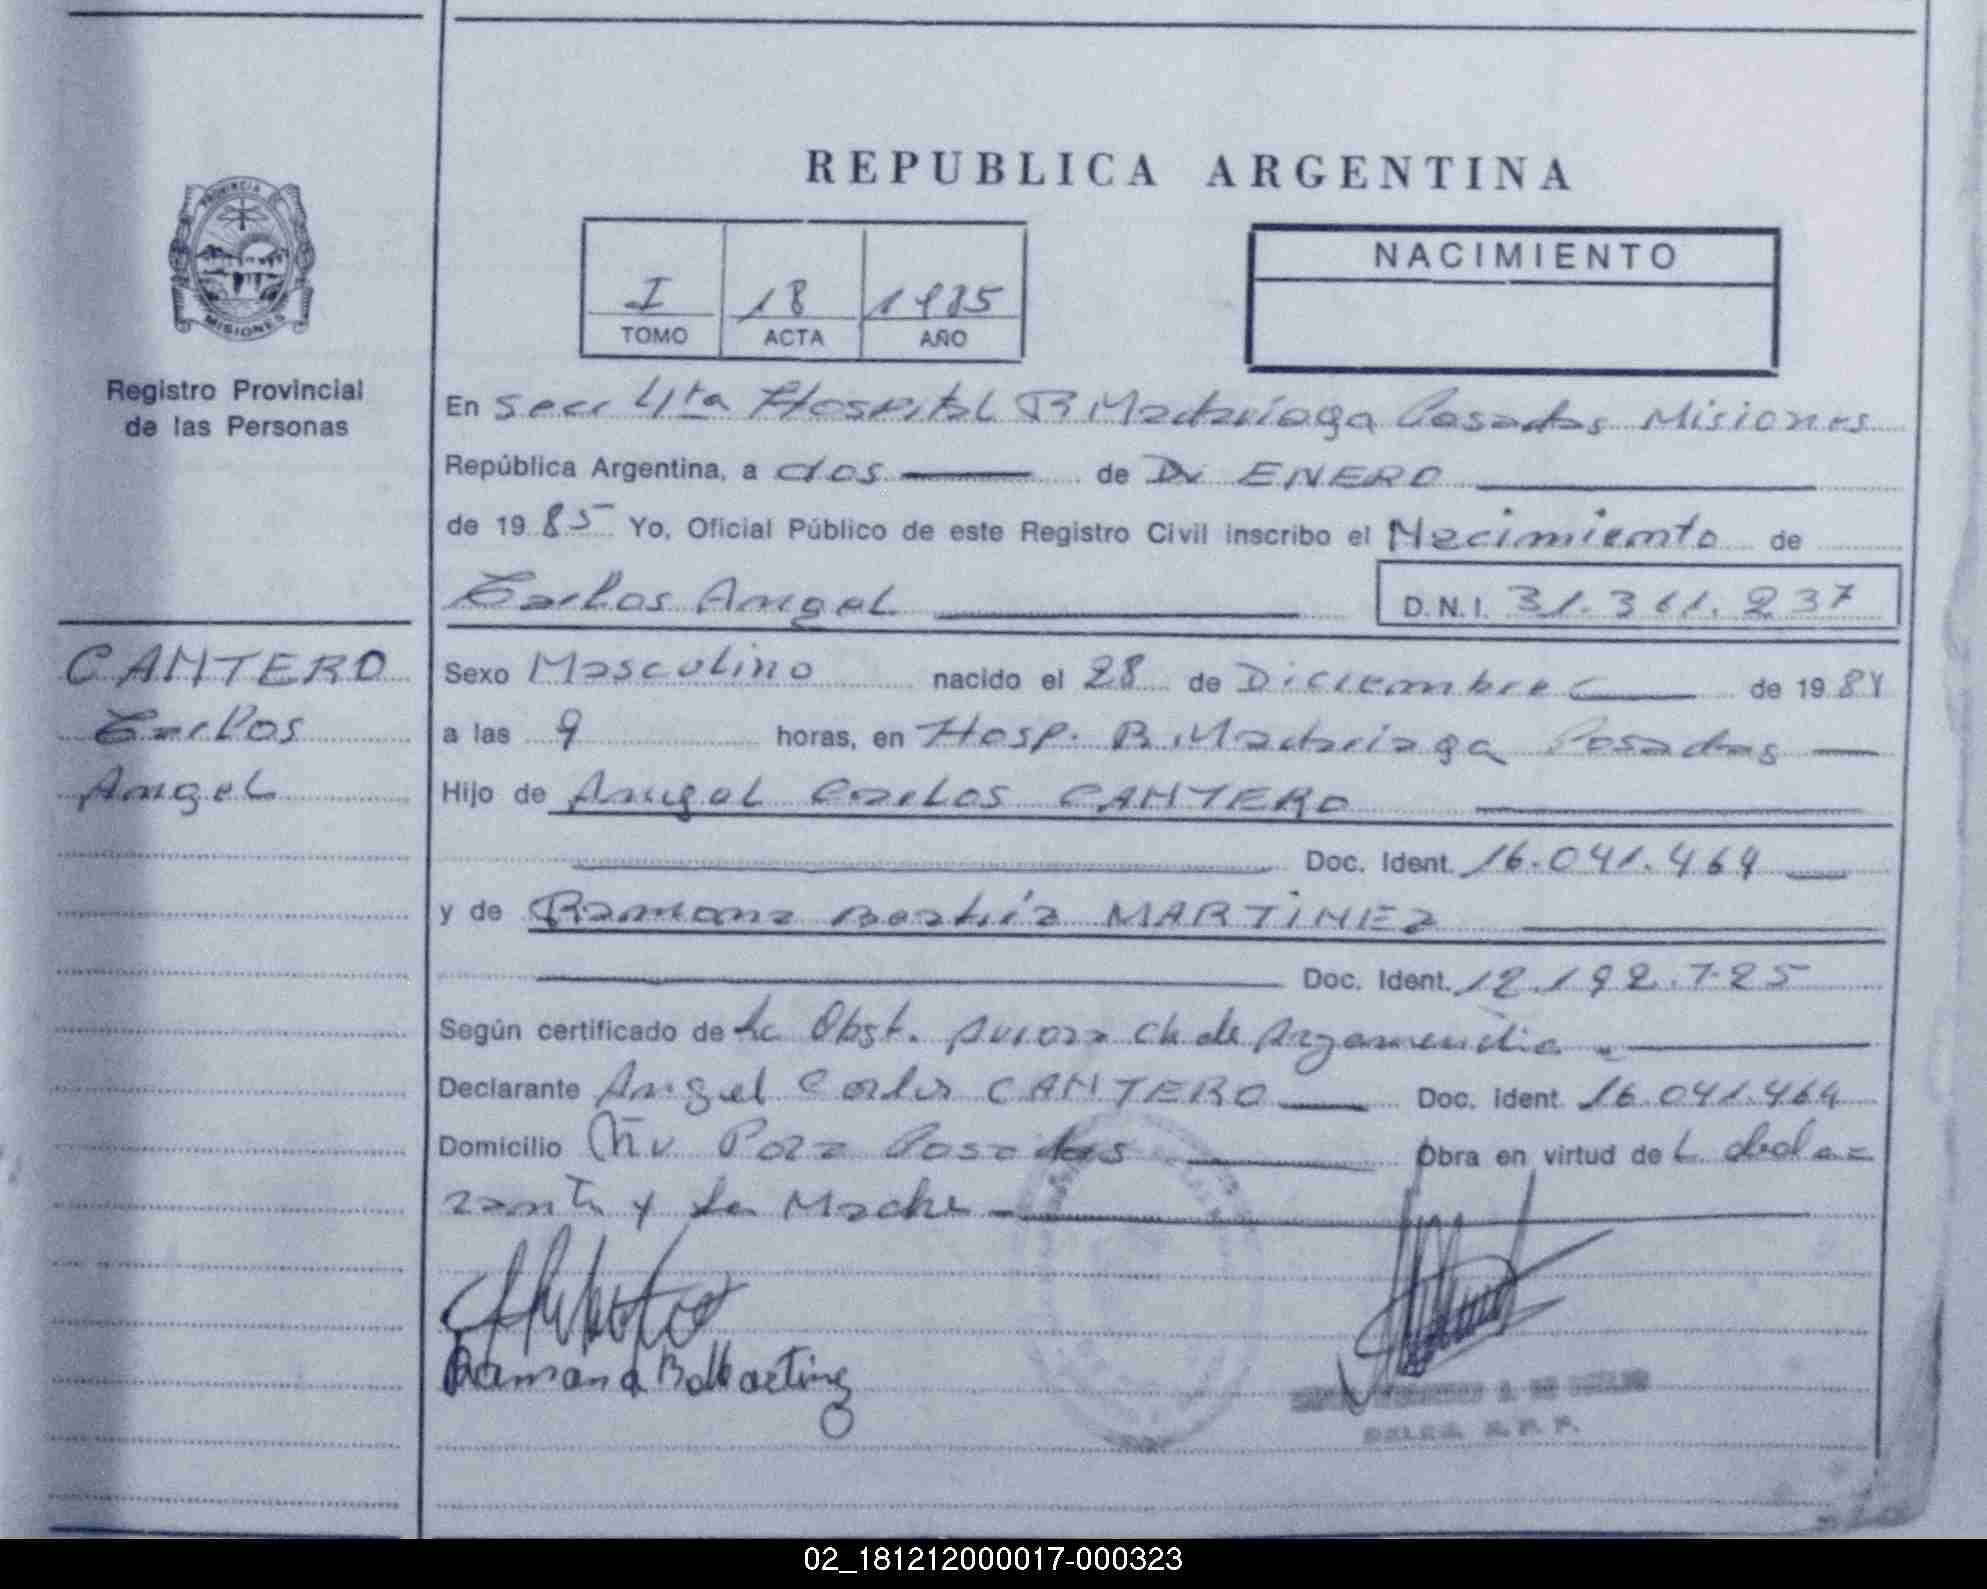 REPUBLICA ARGENTINA
PROVINCIA
MISIONES
Registro Provincial
de las Personas
I 18 1985
TOMO ACTA AÑO
NACIMIENTO
En Secc 4ta Hospital R Madariaga Posadas Misiones
República Argentina, a dos de De ENERO
de 1985 Yo, Oficial Público de este Registro Civil inscribo el Nacimiento de
Carlos Angel D.N.I. 31.361.237
CANTERO
Carlos
Angel
Sexo Masculino nacido el 28 de Diciembre de 1984
a las 9 horas, en Hosp. R. Madariaga Posadas
Hijo de Angel Carlos CANTERO
Doc. Ident. 16.041.464
y de Ramona Beatriz MARTINEZ
Doc. Ident. 12.192.725
Según certificado de La Obst. Aurora Ch de Argamendia
Declarante Angel Carlos CANTERO Doc. Ident. 16.041.464
Domicilio Posadas Obra en virtud de L decla=
rante y La Madre
Ramona B Martinez
02_181212000017-000323